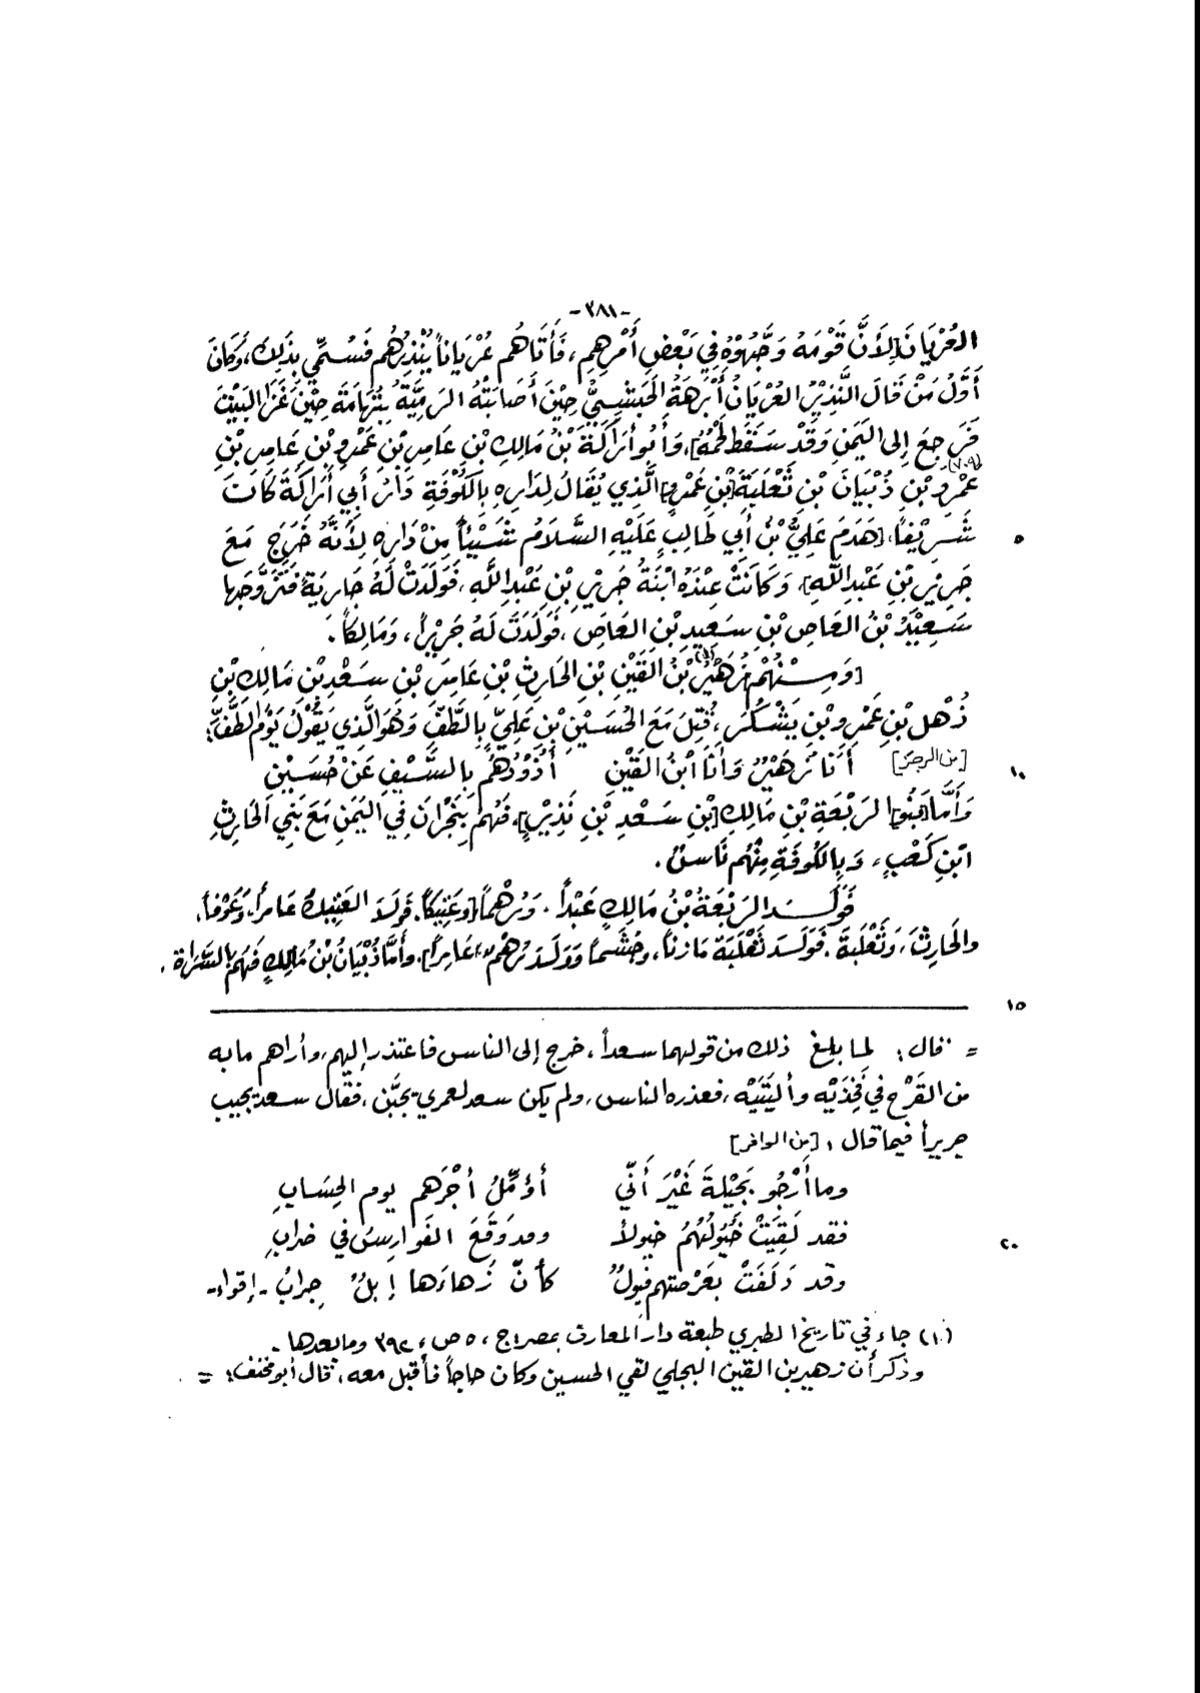 -٣٨١-
العُرْيَانَ لِأَنَّ قَوْمَهُ وَجَّهُوْهُ فِي بَعْضِ أَمْرِهِمِ، فَأَتَاهُم عُرْيَاناً يُنْذِرُهُم فَسُمِّي بِذَلِكَ، وَكَانَ
أَوَّلُ مَنْ قَالَ النَّذِيْرُ العُرْيَانُ أَبْرَهَةُ الحَبَشِيُّ حِيْنَ أَصَابَتْهُ الرَّمِيَّةُ بِتِهَامَةَ حِيْنَ غَزَا البَيْتَ
فَرَجِعَ إِلى اليَمَنِ وَقَدْ سَقَطَ لَحْمُهُ]، وَأَبُو أَرَاكَةَ بْنُ مَالِكِ بْنِ عَامِرِ بْنِ عَمْرِو بْنِ عَامِرِ بْنِ
(٧٠٩)
عَمْرِو بْنِ ذُبْيَانَ بْنِ ثَعْلَبَةَ [بْنِ عَمْرٍو] الَّذِي يُقَالُ لِدَارِهِ بِالكُوْفَةِ دَارُ أَبِي أَرَاكَةَ كَانَ
شَرِيْفاً، [هَدَمَ عَلِيُّ بْنُ أَبِي طَالِبٍ عَلَيْهِ السَّلَامُ شَيْئاً مِنْ دَارِهِ لِأَنَّهُ خَرَجَ مَعَ ٥
جَرِيرِ بْنِ عَبْدِ اللَّهِ]، وَكَانَتْ عِنْدَهُ ابْنَةُ جَرِيْرِ بْنِ عَبْدِ اللَّهِ، فَوَلَدَتْ لَهُ جَارِيَةً فَتَزَوَّجَهَا
سَعِيْدُ بْنُ العَاصِ بْنِ سَعِيدِ بْنِ العَاصِ، فَوَلَدَتْ لَهُ جَرِيْراً، وَمَالِكاً.
[وَمِنْهُمْ زُهَيْرُ(١) بْنُ القَيْنِ بْنِ الحَارِثِ بْنِ عَامِرِ بْنِ سَعْدِ بْنِ مَالِكِ بْنِ
ذُهْلِ بْنِ عَمْرِو بْنِ يَشْكُرَ، قُتِلَ مَعَ الحُسَيْنِ بْنِ عَلِيٍّ بِالطَّفِّ وَهُوَ الَّذِي يَقُوْلُ يَوْمَ الطَّفِّ:
[من الرجز] أَنَا زُهَيْرٌ وَأَنَا ابْنُ القَيْنِ أَذُوْدُهُمُ بِالسَّيْفِ عَنْ حُسَيْنِ ١٠
وَأَمَّا [بَنُو] الرَبْعَةِ بْنِ مَالِكِ [بْنِ سَعْدِ بْنِ نَذِيْرٍ]، فَهُم بِنَجْرَانَ فِي اليَمَنِ مَعَ بَنِي الحَارِثِ
ابْنِ كَعْبٍ، وَبِالكُوفَةِ مِنْهُم نَاسٌ.
فَوَلَدَ الرَبْعَةُ بْنُ مَالِكٍ عَبْداً. وَرُهْماً [وَعَتِيكاً. فَوَلَدَ العَتِيكُ عَامراً، وَعَوْفاً،
والحَارِثَ، وَثَعْلَبَةَ. فَوَلَدَ ثَعْلَبَةُ مَازِناً، وجُشَماً وَوَلَدَ رُهْمُ عَامِراً]. وأَمَّا ذُبْيَانُ بْنُ مَالِكٍ فَهُم بِالسَّرَاة.
١٥
= قال: لما بلغ ذلك من قولهما سعداً، خرج إلى الناس فاعتذر إليهم، وأراهم مابه
من القَرْحِ في فَخِذَيْه وأَليَتَيْه، فعذره الناس، ولم يكن سعد لعمري يجبَّن، فقال سعد يجيب
جريراً فيما قال: [من الوافر]
وما أَرْجُو بَجِيْلةَ غَيْرَ أَنِّي أؤمِّلُ أجْرَهم يوم الحِسَابِ
فقد لَقِيَتْ خُيُولُهُمُ خيولاً وقد وَقَعَ الفَوارِسُ في ضرابِ ٢٠
وقد دَلَفَتْ بعَرْصَتهم فيولٌ كأنّ زُهاءَها إبلٌ جِرابُ -إقواء-
(١) جاء في تاريخ الطبري طبعة دار المعارف بمصر ج، ٥ ص، ٣٩٢ ومابعدها.
وذكر أن زهير بن القين البجلي لقي الحسين وكان حاجاً فأقبل معه، قال أبو مخنف: =